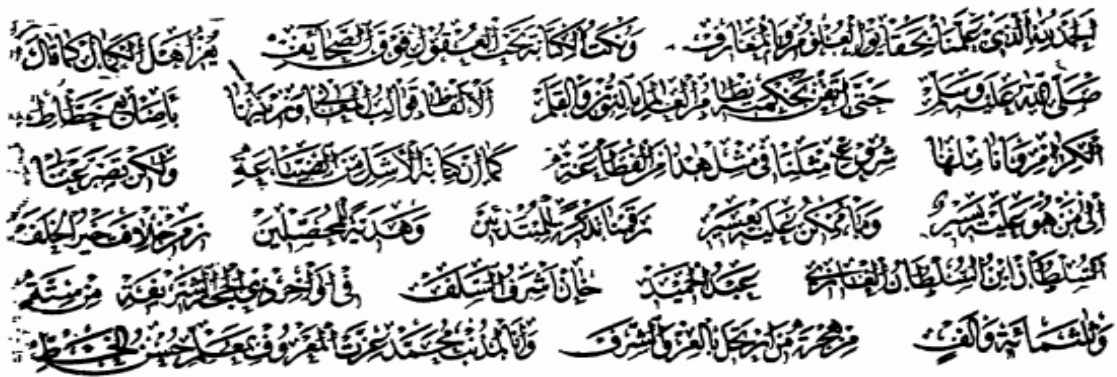 الحمد لله الذي علمنا بحقائق العلوم والمعارف ونكت الكتابة تحت العقول فوق الصحائف من اهل الكمال كما قال
صلى الله عليه وسلم حتى انتقش بحكمته نظام العالم بالنون والقلم الالفاظ قوالب المعاني باصابع خطاط
الكرام شرف مثلنا في مثل هذا من الفظاعة كما ان كتابة الاشل من ولكن تضرعنا
الى من هو عليه يسير وما يمكن عليه يعسير رقمنا تذكرة للمبتدئين وهدية للمحصلين زمن خلافة خير الخلف
السلطان ابن السلطان الغازي عبد الحميد خان اشرف السلف في اواخر ذي الحجة الشريفة من ستة
وثلثمائة والف من هجرة من ارتحل بالعز والشرف وانا المذنب محمد عزت المعروف بمعلم حسن الخط